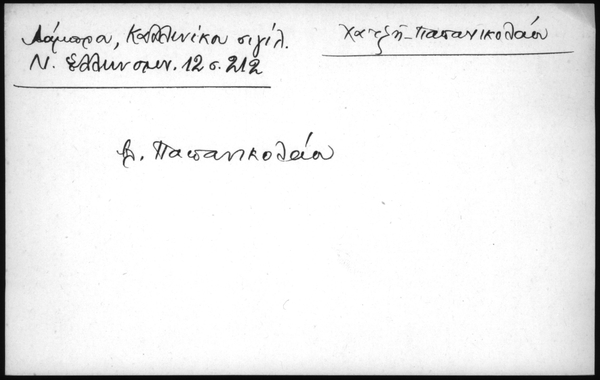 Λάμπρου, Καλλινίκου σιγίλ.
Ν. Ἑλληνομν. 12 σ. 212
Χατζῆ-Παπανικολάου
βλ. Παπανικολάου